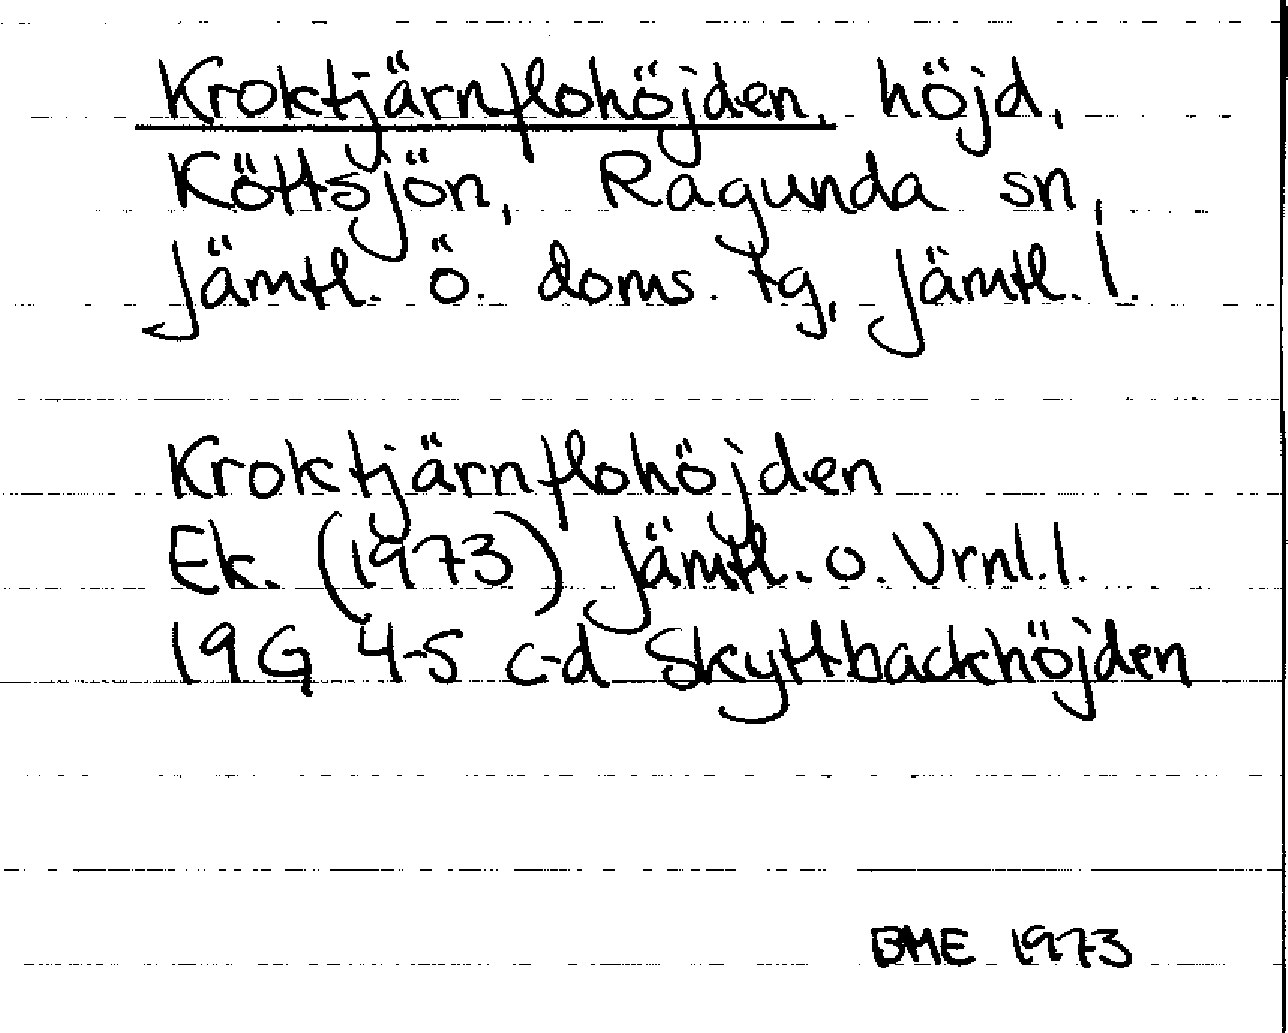 Kroktjärnflohöjden, höjd,
Köttsjön, Ragunda sn,
Jämtl. ö. doms. tg, Jämtl. l.
Kroktjärnflohöjden
Ek. (1973) Jämtl. o. Vrnl. l.
19G 4-5 c-d Skyttbackhöjden
BME 1973